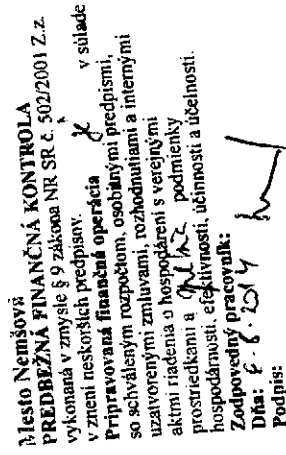 Mesto Nemšová
PREDBEŽNÁ FINANČNÁ KONTROLA
vykonaná v zmysle § 9 zákona NR SR č. 502/2001 Z.z.
v znení neskorších predpisov.
Pripravovaná finančná operácia je v súlade
so schváleným rozpočtom, osobitnými predpismi,
uzatvorenými zmluvami, rozhodnutiami a internými
aktmi riadenia o hospodárení s verejnými
prostriedkami a spĺňa podmienky
hospodárnosti, efektívnosti, účinnosti a účelnosti.
Zodpovedný pracovník:
Dňa: 6.6.2014
Podpis: